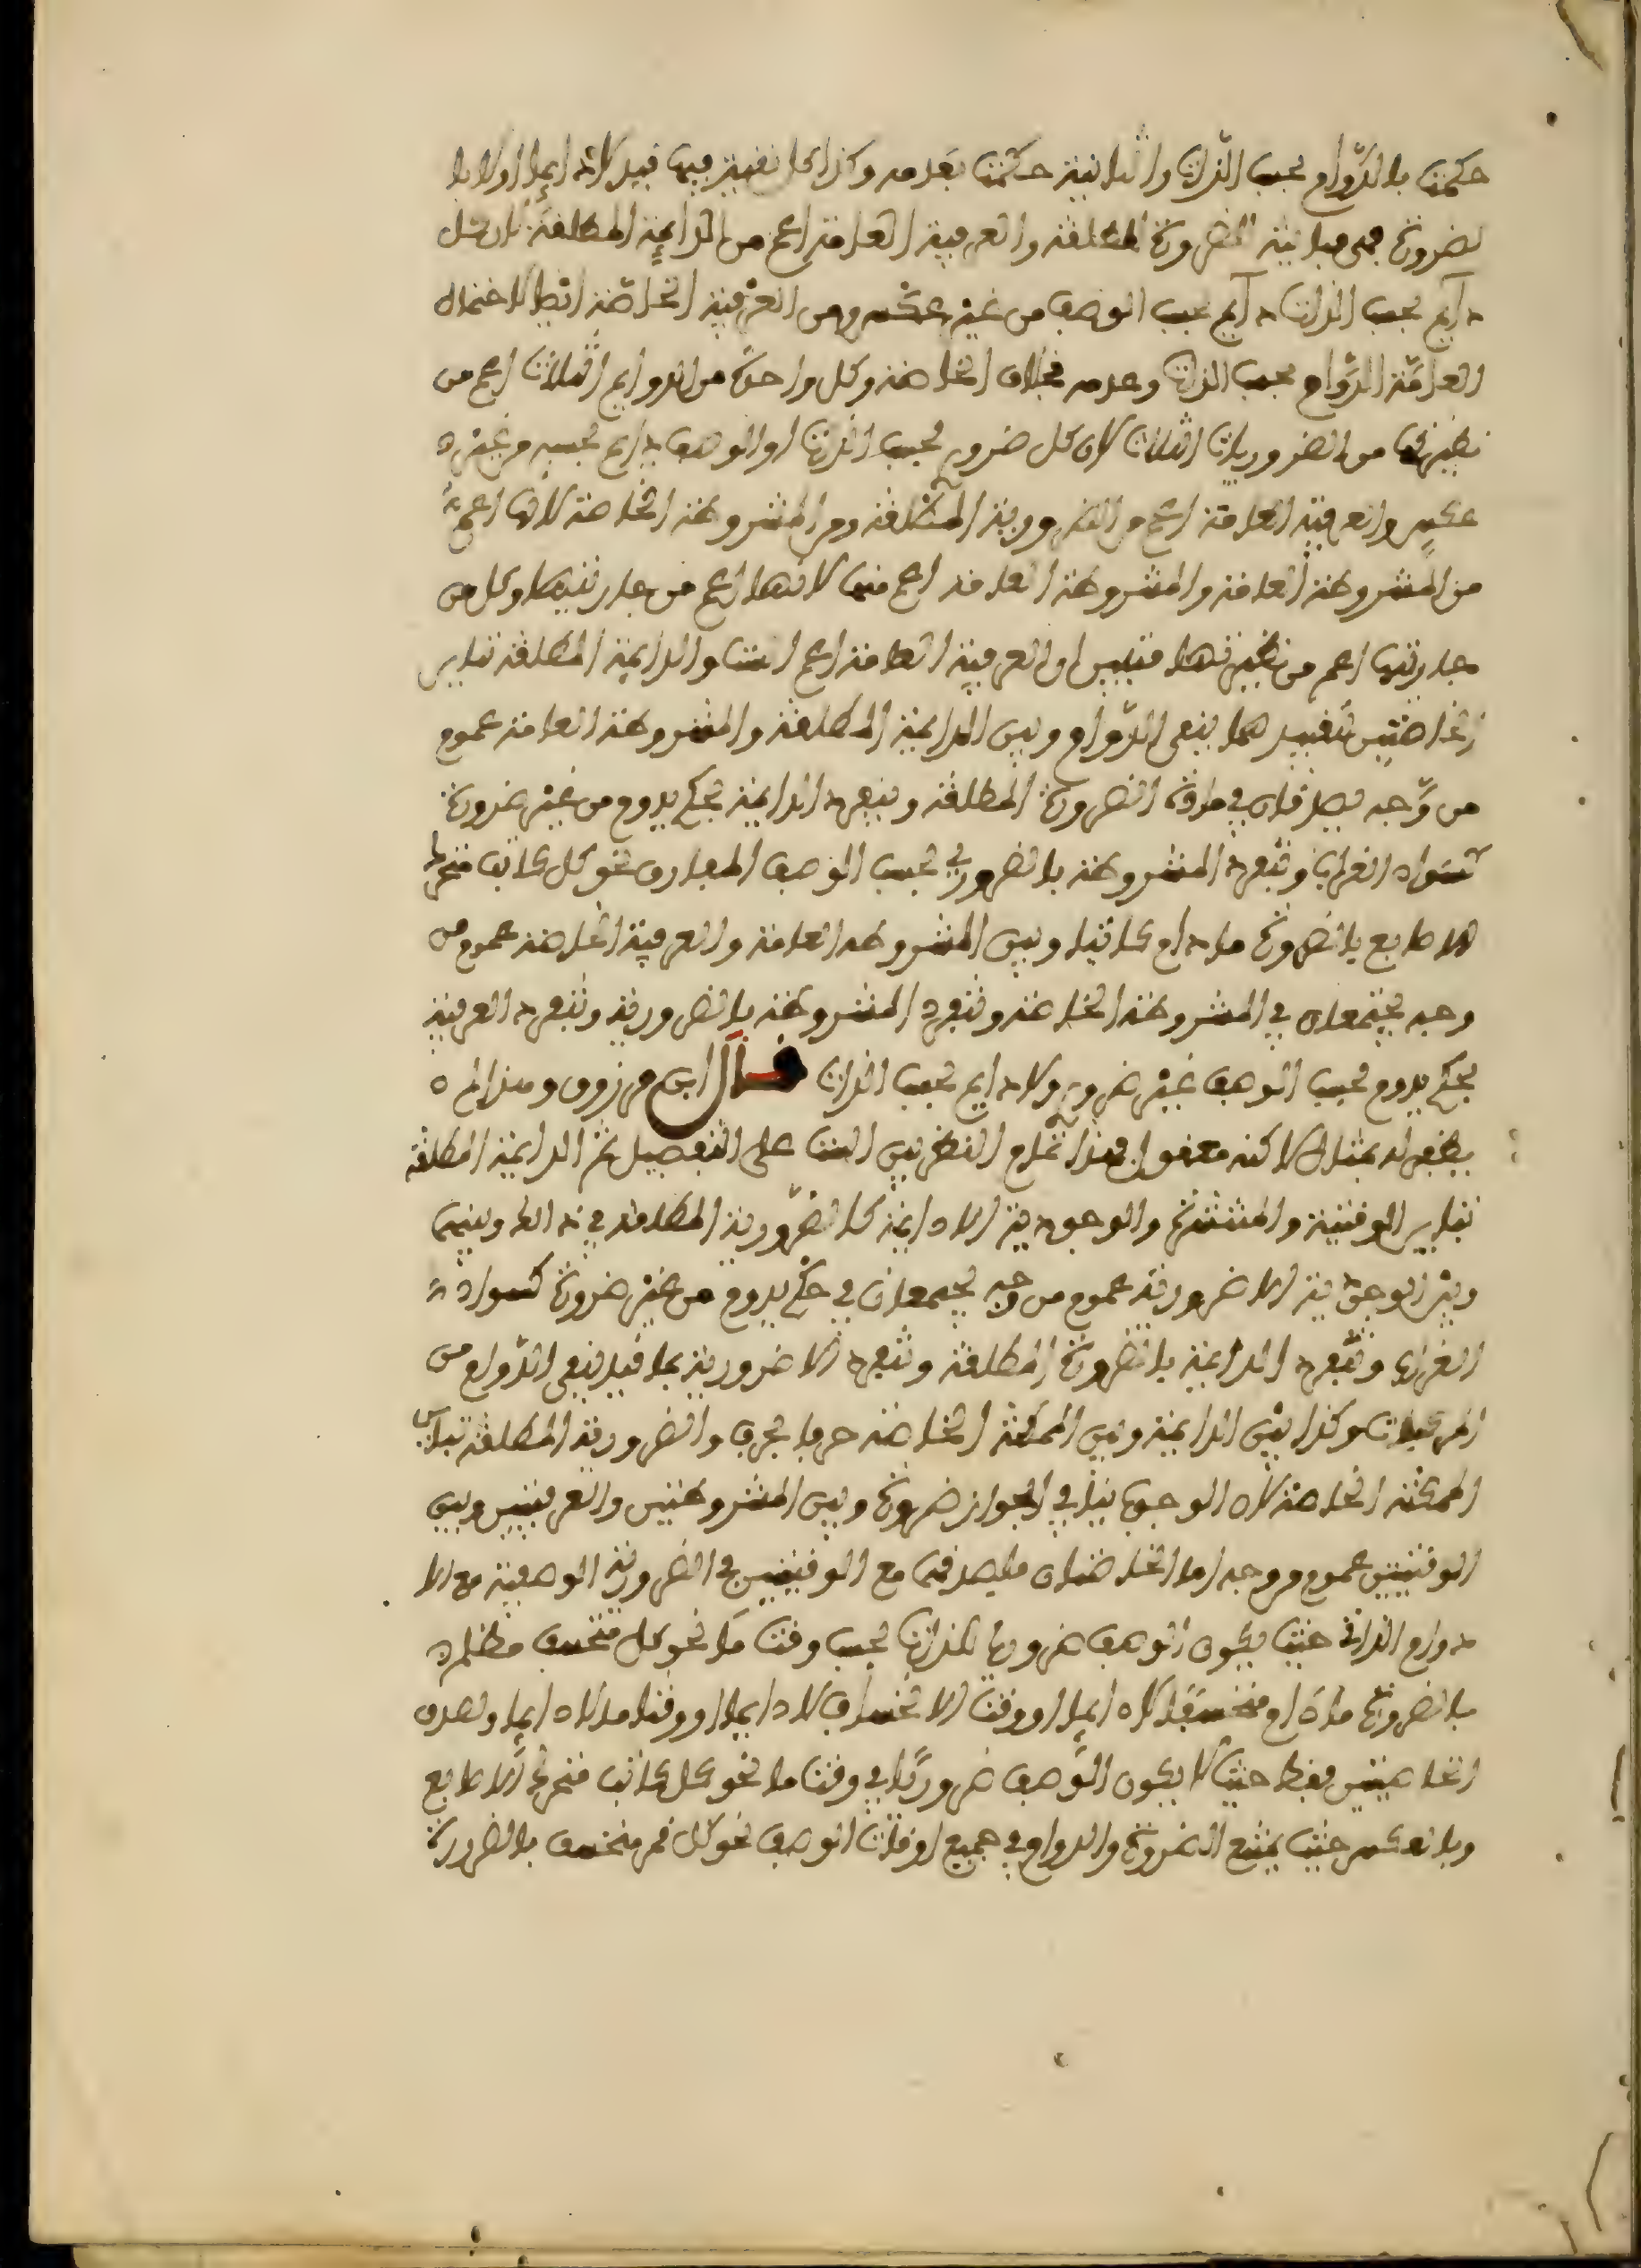 حكمت بالدوام بحسب الذات والثانية حكمت بعدمه وكذا كل قضية فيها قيد لا دائما او لا بال
ضرورة فهي مباينة للضرورة المطلقة والعرفية العامة اعم من الدائمة المطلقة لان كل
دائم بحسب الذات دائم بحسب الوصف من غير عكس ومن العرفية الخاصة ايضا لاحتمال
العامة الدوام بحسب الذات وعدمه بخلاف الخاصة وكل واحدة من الدوايم الثلاث اعم من
نظيرتها من الضروريات الثلاث لان كل ضروري بحسب الذات او الوصف دايم بحسبه من غير
عكس والعرفية العامة اعم من الضرورية المطلقة ومن المشروطة الخاصة لانها اعم
من المشروطة العامة والمشروطة العامة اعم منها لانها اعم من جارتيها وكل من
جارتيها اعم من نظيرتها فتبين ان العرفية العامة اعم الست والدايمة المطلقة تباين
الخاصتين لتقييدهما بنفي الدوام وبين الدايمة المطلقة والمشروطة العامة عموم
من وجه يصدقان في مادة الضرورة المطلقة وتنفرد الدايمة بحكم يدوم من غير ضرورة
كسواد الغراب وتنفرد المشروطة بالضروري بحسب الوصف المفارق نحو كل كاتب متحرك
الاصابع بالضرورة ما دام كاتبا وبين المشروطة العامة والعرفية الخاصة عموم من
وجه يجتمعان في المشروطة الخاصة وتنفرد المشروطة بالضرورية وتنفرد العرفية
بحكم يدوم بحسب الوصف غير ضروري ولا دايم بحسب الذات قال ابن مرزوق وهذا لم
يظفر له بمثال لاكنه معقول فهذا تمام النظر بين الست على التفصيل ثم الدايمة المطلقة
تباين الوقتية والمنتشرة والوجودية اللا دايمة كالضرورية المطلقة في ذالك وبينها
وبين الوجودية اللا ضرورية عموم من وجه يجتمعان في حكم يدوم من غير ضرورة كسواد
الغراب وتنفرد الدايمة بالضرورة المطلقة وتنفرد اللا ضرورية بما قيد بنفي الدوام من
المركبات وكذا بين الدايمة وبين الممكنة الخاصة حرفا بحرف والضرورية المطلقة تباين
الممكنة الخاصة لان الوجوب ينافي الجواز ضرورة وبين المشروطتين والعرفيتين وبين
الوقتيتين عموم من وجه اما الخاصتان فيصدقن مع الوقتيتين في الضرورية الوصفية مع اللا
دوام الذاتي حيث يكون الوصف ضروريا للذات بحسب وقت ما نحو كل منخسف مظلم
بالضرورة ما دام منخسفا لا دايما او وقت الانخساف لا دايما او وقتا ما لا دايما وتصدق
الخاصتين فقط حيث لا يكون الوصف ضروريا في وقت ما نحو كل كاتب متحرك الاصابع
وبالعكس حيث يمتنع الضرورة والدوام في جميع اوقات الوصف نحو كل قمر منخسف بالضرورة